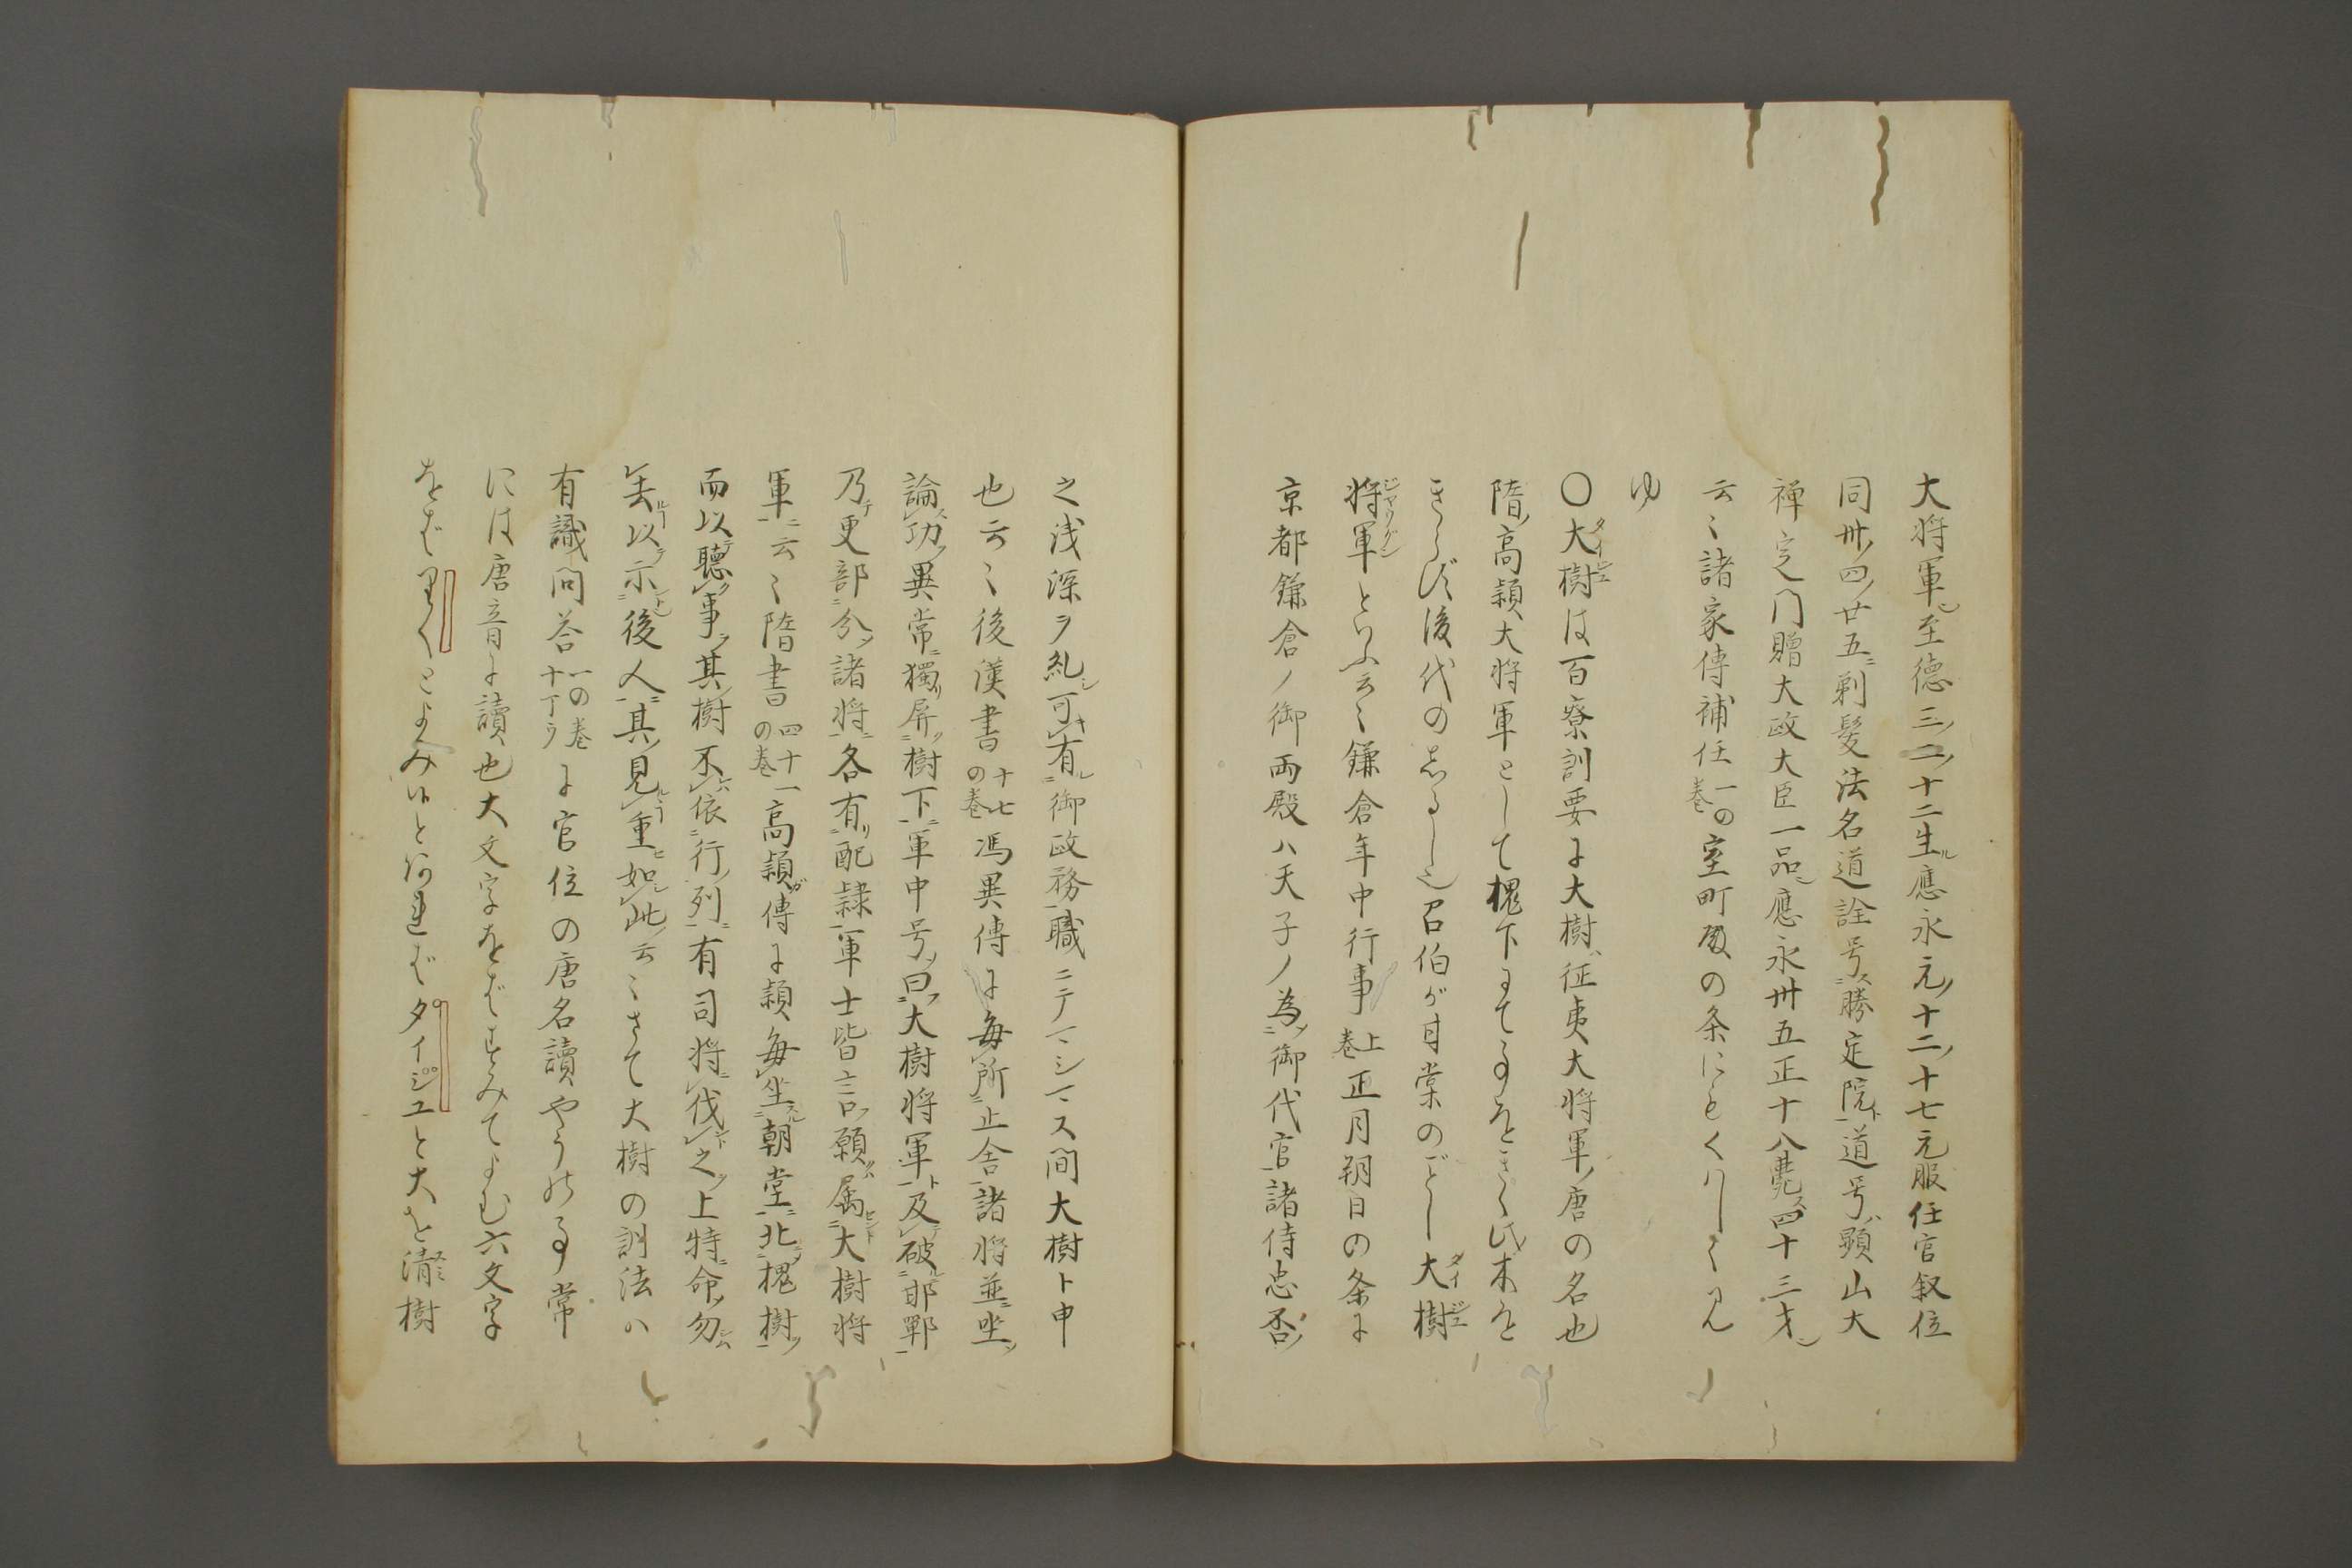 大将軍至徳三ノ二ノ十二生應永元ノ十二ノ十七元服任官叙位
同卅ノ四ノ廿五剃髪法名道詮号勝定院道号顕山大
禅定門贈大政大臣一品應永卅五正十八薨四十三才
云々諸家傳補任一の巻室町殿の条にもくはしくみ
ゆ
〇大樹は百寮訓要に大樹征夷大将軍ノ唐の名也
隋ノ高頴大将軍として槐下にて事をきく此木を
きらず後代のしるし也召伯が甘棠のごとし大樹
将軍といふ云々鎌倉年中行事上巻正月朔日の条に
京都鎌倉ノ御両殿ハ天子ノ為御代官諸侍忠否
之浅深ヲ糺可有御政務職ニテマシマス間大樹ト申
也云々後漢書十七の巻馮異傳に毎所止舎諸将並坐
論功異常獨屏樹下軍中号曰大樹将軍及破邯鄲
乃更部分諸将各有配隷軍士皆言願属大樹将
軍云々隋書四十一の巻高頴傳に頴毎坐朝堂北槐樹
而以聴事其樹不依行列有司将伐之上特命勿
去以示後人其見重如此云々さて大樹の訓法ハ
有識問答一の巻十丁ウに官位の唐名讀やうの事常
には唐音に讀也大文字をばすみてよむ六文字
をばりくとよみ候とあればタイジユと大を清樹